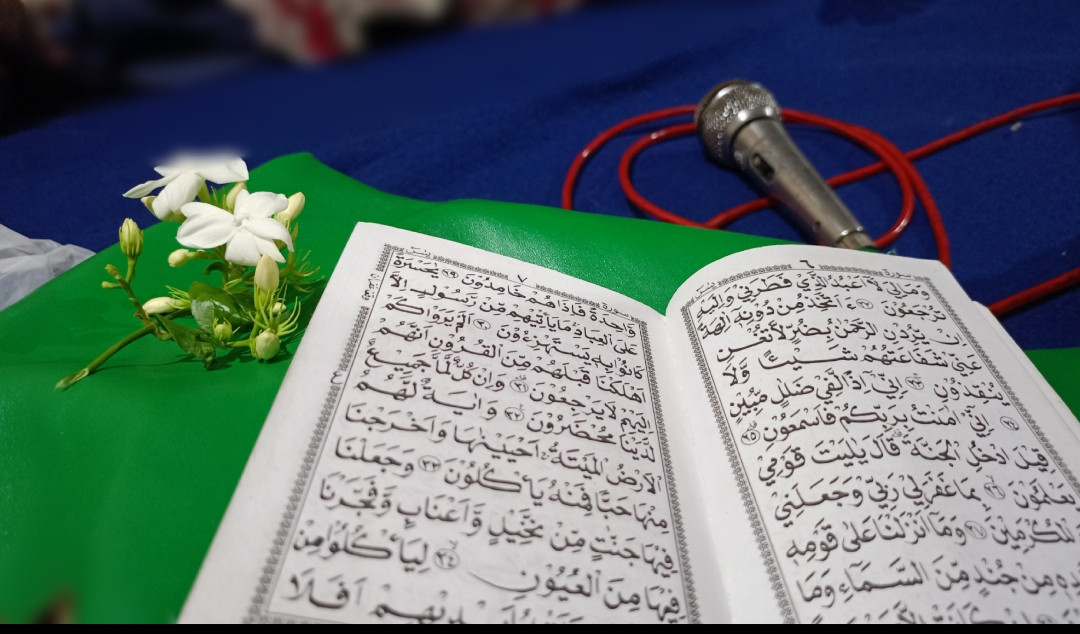 سورة ٦
وَمَالِيَ لَآ اَعْبُدُ الَّذِيْ فَطَرَنِيْ وَاِلَيْهِ
تُرْجَعُوْنَ ٢٢ ءَاَتَّخِذُ مِنْ دُوْنِهٖٓ اٰلِهَةً
اِنْ يُّرِدْنِ الرَّحْمٰنُ بِضُرٍّ لَّا تُغْنِ
عَنِّيْ شَفَاعَتُهُمْ شَيْـًٔا وَّلَا
يُنْقِذُوْنِ ٢٣ اِنِّيْٓ اِذًا لَّفِيْ ضَلٰلٍ مُّبِيْنٍ
٢٤ اِنِّيْٓ اٰمَنْتُ بِرَبِّكُمْ فَاسْمَعُوْنِ ٢٥
قِيْلَ ادْخُلِ الْجَنَّةَ قَالَ يٰلَيْتَ قَوْمِيْ
يَعْلَمُوْنَ ٢٦ بِمَا غَفَرَ لِيْ رَبِّيْ وَجَعَلَنِيْ
الْمُكْرَمِيْنَ ٢٧ وَمَآ اَنْزَلْنَا عَلٰى قَوْمِهٖ
مِنْ جُنْدٍ مِّنَ السَّمَآءِ وَمَا
سورة ٧ يٰسٓ
وَّاحِدَةً فَاِذَا هُمْ خَامِدُوْنَ ٢٩ يٰحَسْرَةً
عَلَى الْعِبَادِ مَا يَاْتِيْهِمْ مِّنْ رَّسُوْلٍ اِلَّا
كَانُوْا بِهٖ يَسْتَهْزِءُوْنَ ٣٠ اَلَمْ يَرَوْا كَمْ
اَهْلَكْنَا قَبْلَهُمْ مِّنَ الْقُرُوْنِ اَنَّهُمْ
اِلَيْهِمْ لَا يَرْجِعُوْنَ ٣١ وَاِنْ كُلٌّ لَّمَّا جَمِيْعٌ
لَّدَيْنَا مُحْضَرُوْنَ ٣٢ وَاٰيَةٌ لَّهُمُ
الْاَرْضُ الْمَيْتَةُ اَحْيَيْنٰهَا وَاَخْرَجْنَا
مِنْهَا حَبًّا فَمِنْهُ يَاْكُلُوْنَ ٣٣ وَجَعَلْنَا
فِيْهَا جَنّٰتٍ مِّنْ نَّخِيْلٍ وَّاَعْنَابٍ وَّفَجَّرْنَا
فِيْهَا مِنَ الْعُيُوْنِ ٣٤ لِيَاْكُلُوْا مِنْ
اَيْدِيْهِمْ اَفَلَا